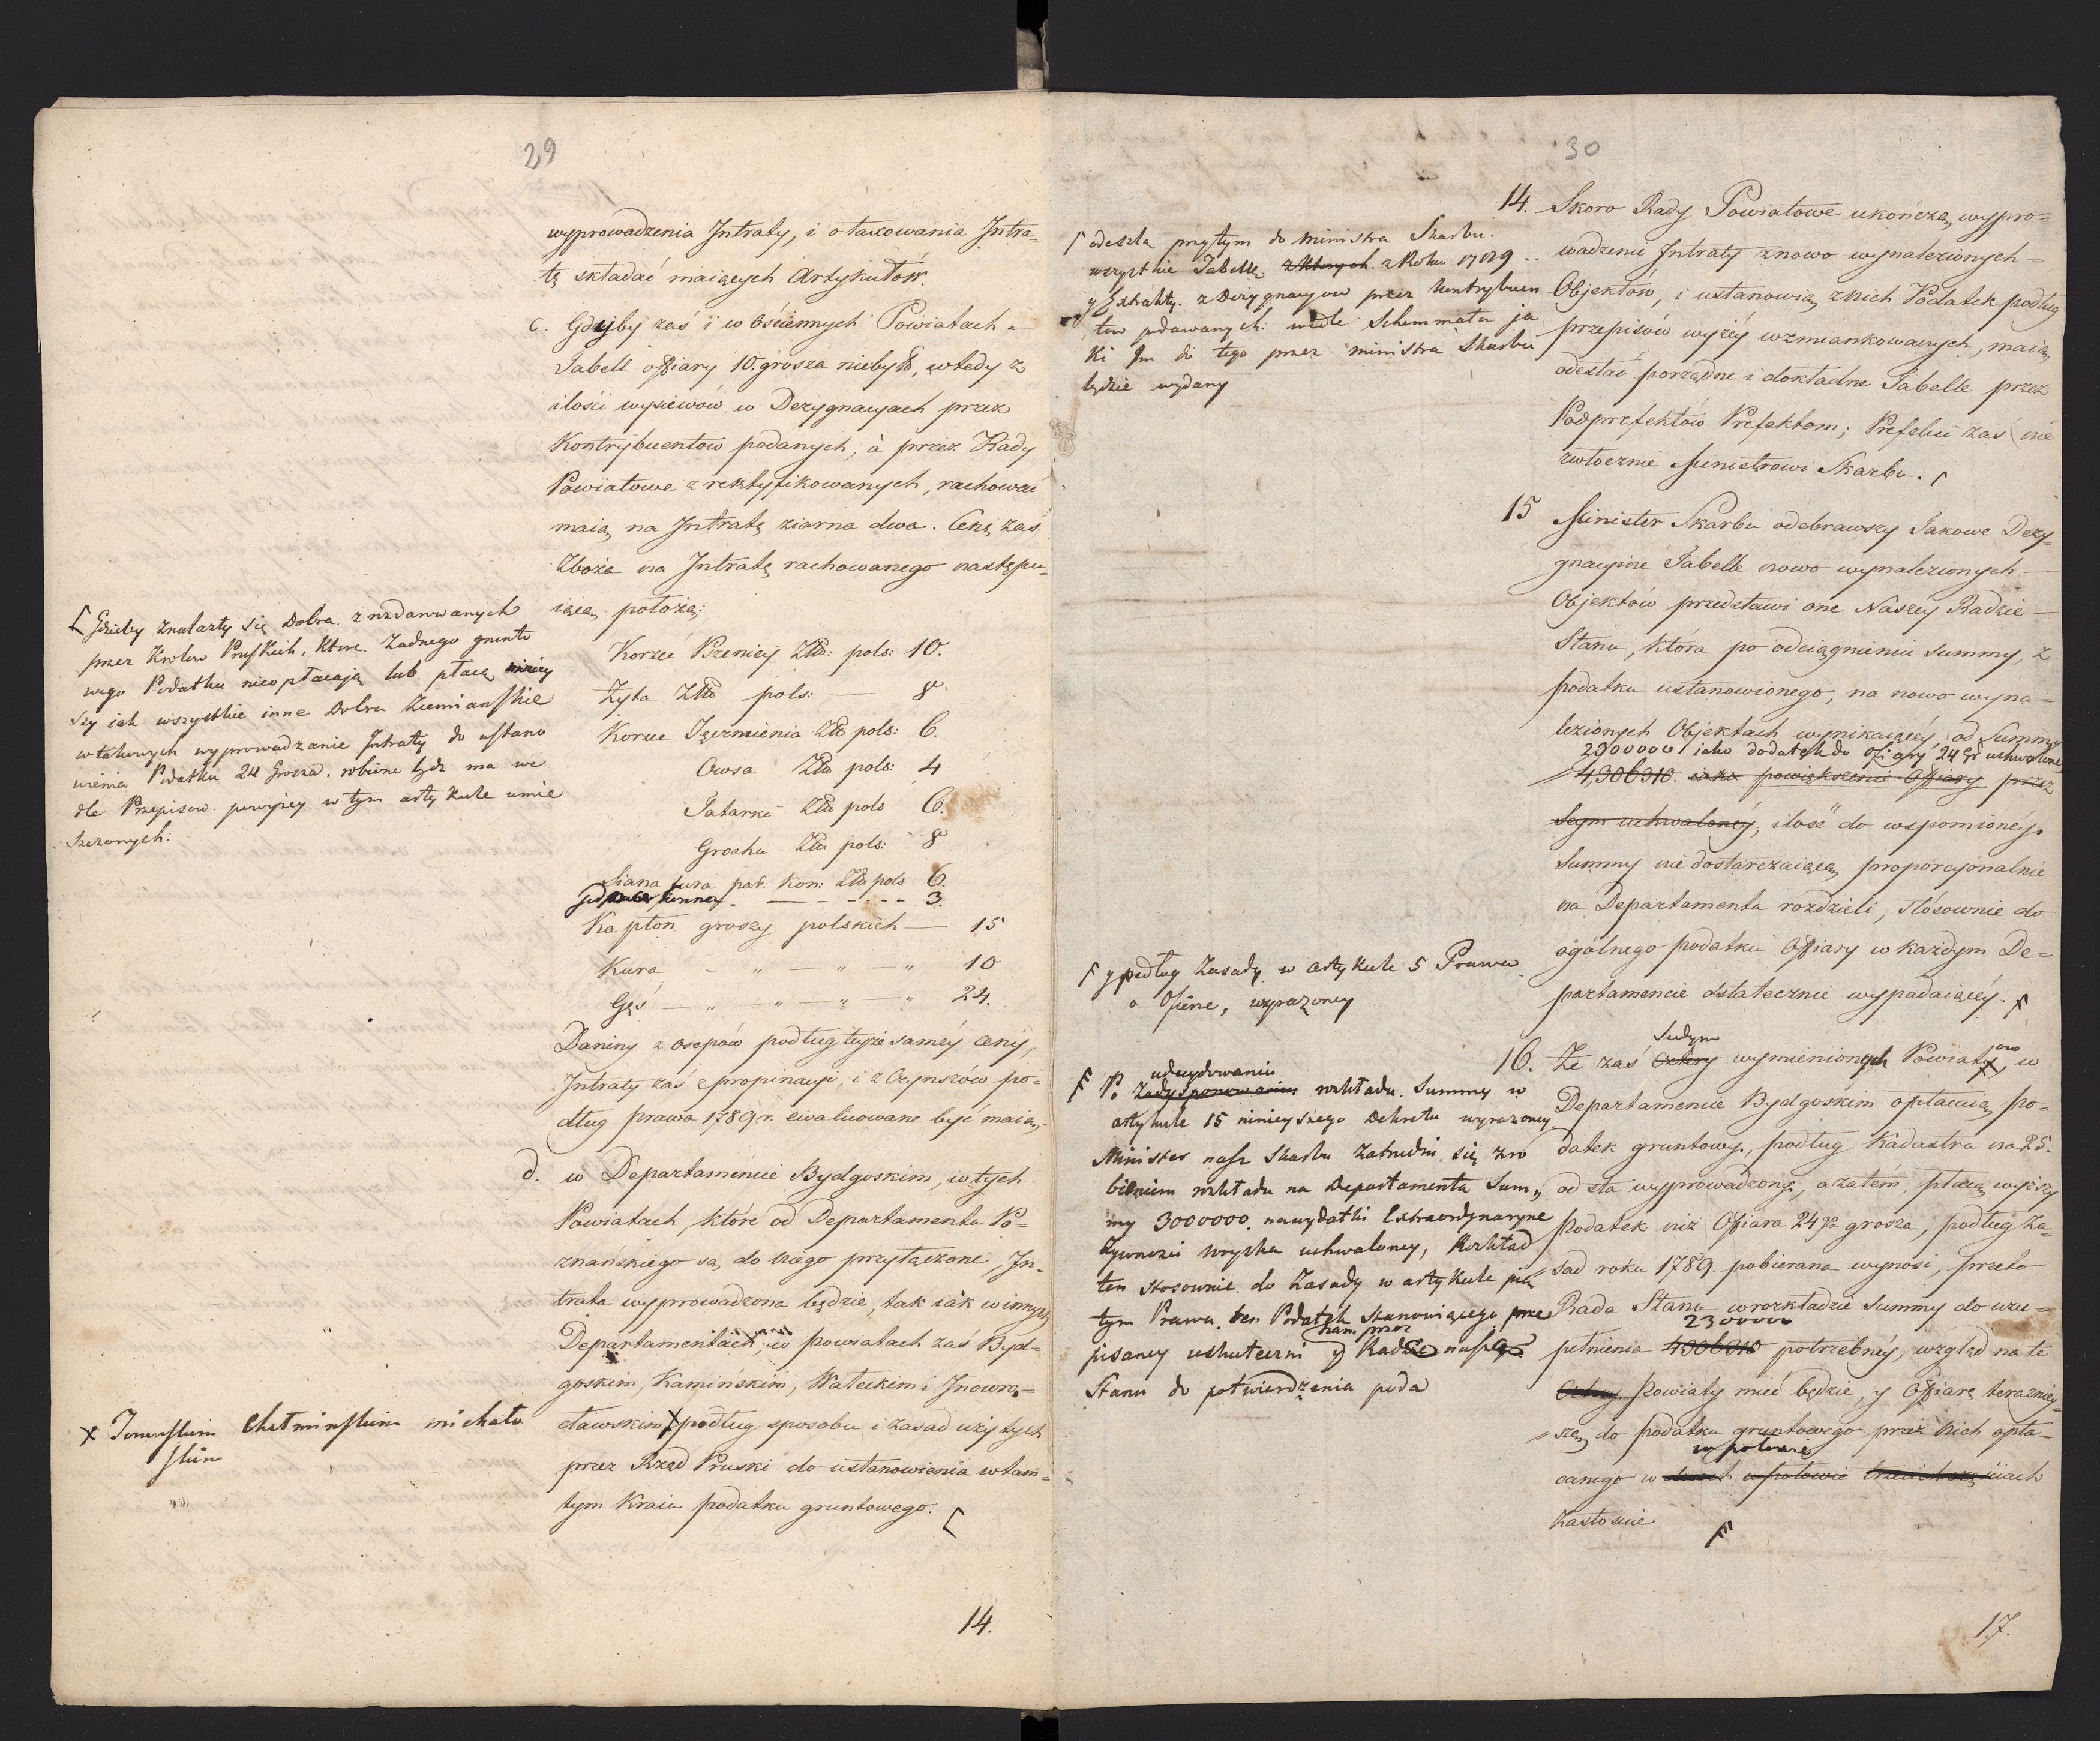 29
wyprowadzenia Intraty, i otaxowania Intra=
tę składać maiących Artykułów.
c. Gdyby zaś i w Ościennych Powiatach =
Tabell offiary 10. grosza nieby8, wtedy z
ilości wysiewów w Dezygnacyach przez
Kontrybuentów podanych, à przez Rady
Powiatowe zrektyfikowanych, rachować
maią na Intratę ziarna dwa. Cenę zaś
Zboża na Intratę rachowanego następu=
iącą położą:
Korzec Pszenicy Złło: pols: 10.
Żyta Złło pols: — 8
Korzec Jęczmienia Złło pols: 6.
Owsa Złło pols: 4
Tatarki Złło pols 6.
Grochu Złło pols: 8
Siana fura par: kon: Złło pols 6.
konna - — - - - - 3.
Kapłon groszy polskich — 15
Kura - " — " — " 10
Gęś — " — " — " — " 24.
Daniny z osepów podług teyże saméy ceny,
Intraty zaś z propinacyi, i z Czynszów po=
dług prawa 1789. r. ewaluowane być maią.
d. w Departamencie Bydgoskim, w tych
Powiatach, które od Departamentu Po=
znańskiego są do niego przyłączone, In=
trata wyprowadzona będzie, tak iak w innych
Departamentach; w powiatach zaś Byd=
goskim, Kamińskim, Wałeckim i Inowro=
cławskim X podług sposobu i zasad użytych
przez Rząd Pruski do ustanowienia w tam=
tym Kraiu podatku gruntowego. [
14.
[ Gdzieby znalazły się Dobra z nadarowanych
przez Królow Pruskich, ktore żadnego grunto
wego Podatku nieopłacają lub płacą mniey
szy jak wszystkie inne Dobra Ziemianskie
wtakowych wyprowadzanie Intraty do ustano
wienia Podatku 24 Grosza. robione bydz ma we
dle Przepisow powyżey w tym artykule umie
szczonych.
X Toruńskim Chełmińskim michało
skim
30
14. Skoro Rady Powiatowe ukończą wypro=
wadzenie Intraty znowo wynalezionych =
Objektów, i ustanowią z nich Podatek podług
przepisów wyżéy wzmiankowanych, maią
odesłać porządne i dokładne Tabelle przez
Podprefektów Prefektom; Prefekci zaś nie
zwłocznie Ministrowi Skarbu. ſ
ſ odeszla przytym do Ministra Skarbu.
wszystkie Tabelle z których z Roku 1789 ..
y Extrakty. z Dezygnacyow przez Kontrybuen
tow podawanych: wedle Schemmatu ja
ki Im do tego przez Ministra Skarbu
będzie wydany
15 Minister Skarbu odebrawszy Takowe Dezy=
gnacyine Tabelle nowo wynalezionych —
Objektów przedstawi one Naszéy Radzie —
Stanu, która po odciągnieniu Summy, z
podatku ustanowionego, na nowo wyna=
lezionych Objektach wynikaiącéy od Summy
2300000 iako dodatek do ofiary 24 Gr uchwalone
4,306310. iako powiększenie Offiary przez
Seym uchwalonéy, ilość do wspomionéy
Summy nie dostarczaiącą, proporcyonalnie
na Departamenta rozdzieli, stósownie do
ogólnego podatku Offiary w każdym De=
partamencie ostatecznie wypadaiącéy. ſ
ſ y podług Zasady w artykule 5 Prawa
o Ofierze, wyrazoney
16. Że zaś
Siedym
Cztery wymienionych Powiatow, w
Departamencie Bydgoskim opłacaią po=
datek gruntowy, podług Kadastru na 25.
od sta wyprowadzony, a zatém, płacą wyższy
Podatek niż Offiara 24go grosza, podług Za=
sad roku 1789. pobierana wynosi, przeto
Rada Stanu w rozkładzie Summy do uzu=
2300000
pełnienia 4306310 potrzebnéy, wzgląd na te
Cztery Powiaty mieć będzie, y Offiarę teraźniey=
szą do podatku gruntowego przez nich opła=
w połowie
canego w dwóch w połowie trzecich częściach
Zastosuie F
17.
F Po
udecydowaniu
Zadysponowaniu rozkładu Summy w
artykule 15 ninieyszego Dekretu wyrazoney
Minister nasz Skarbu zatrudni się zro
bieniem rozkładu na Departamenta Sum=
my 3000000. na wydatki Extraordynaryne
Żywności woyska uchwaloney, Rozkład
ten stosownie do Zasady w artykule pią
tym Prawa ten Podatek Stanowiącego prze
pisaney uskuteczni y
nam przez
Radę naszą
Stanu do potwierdzenia poda